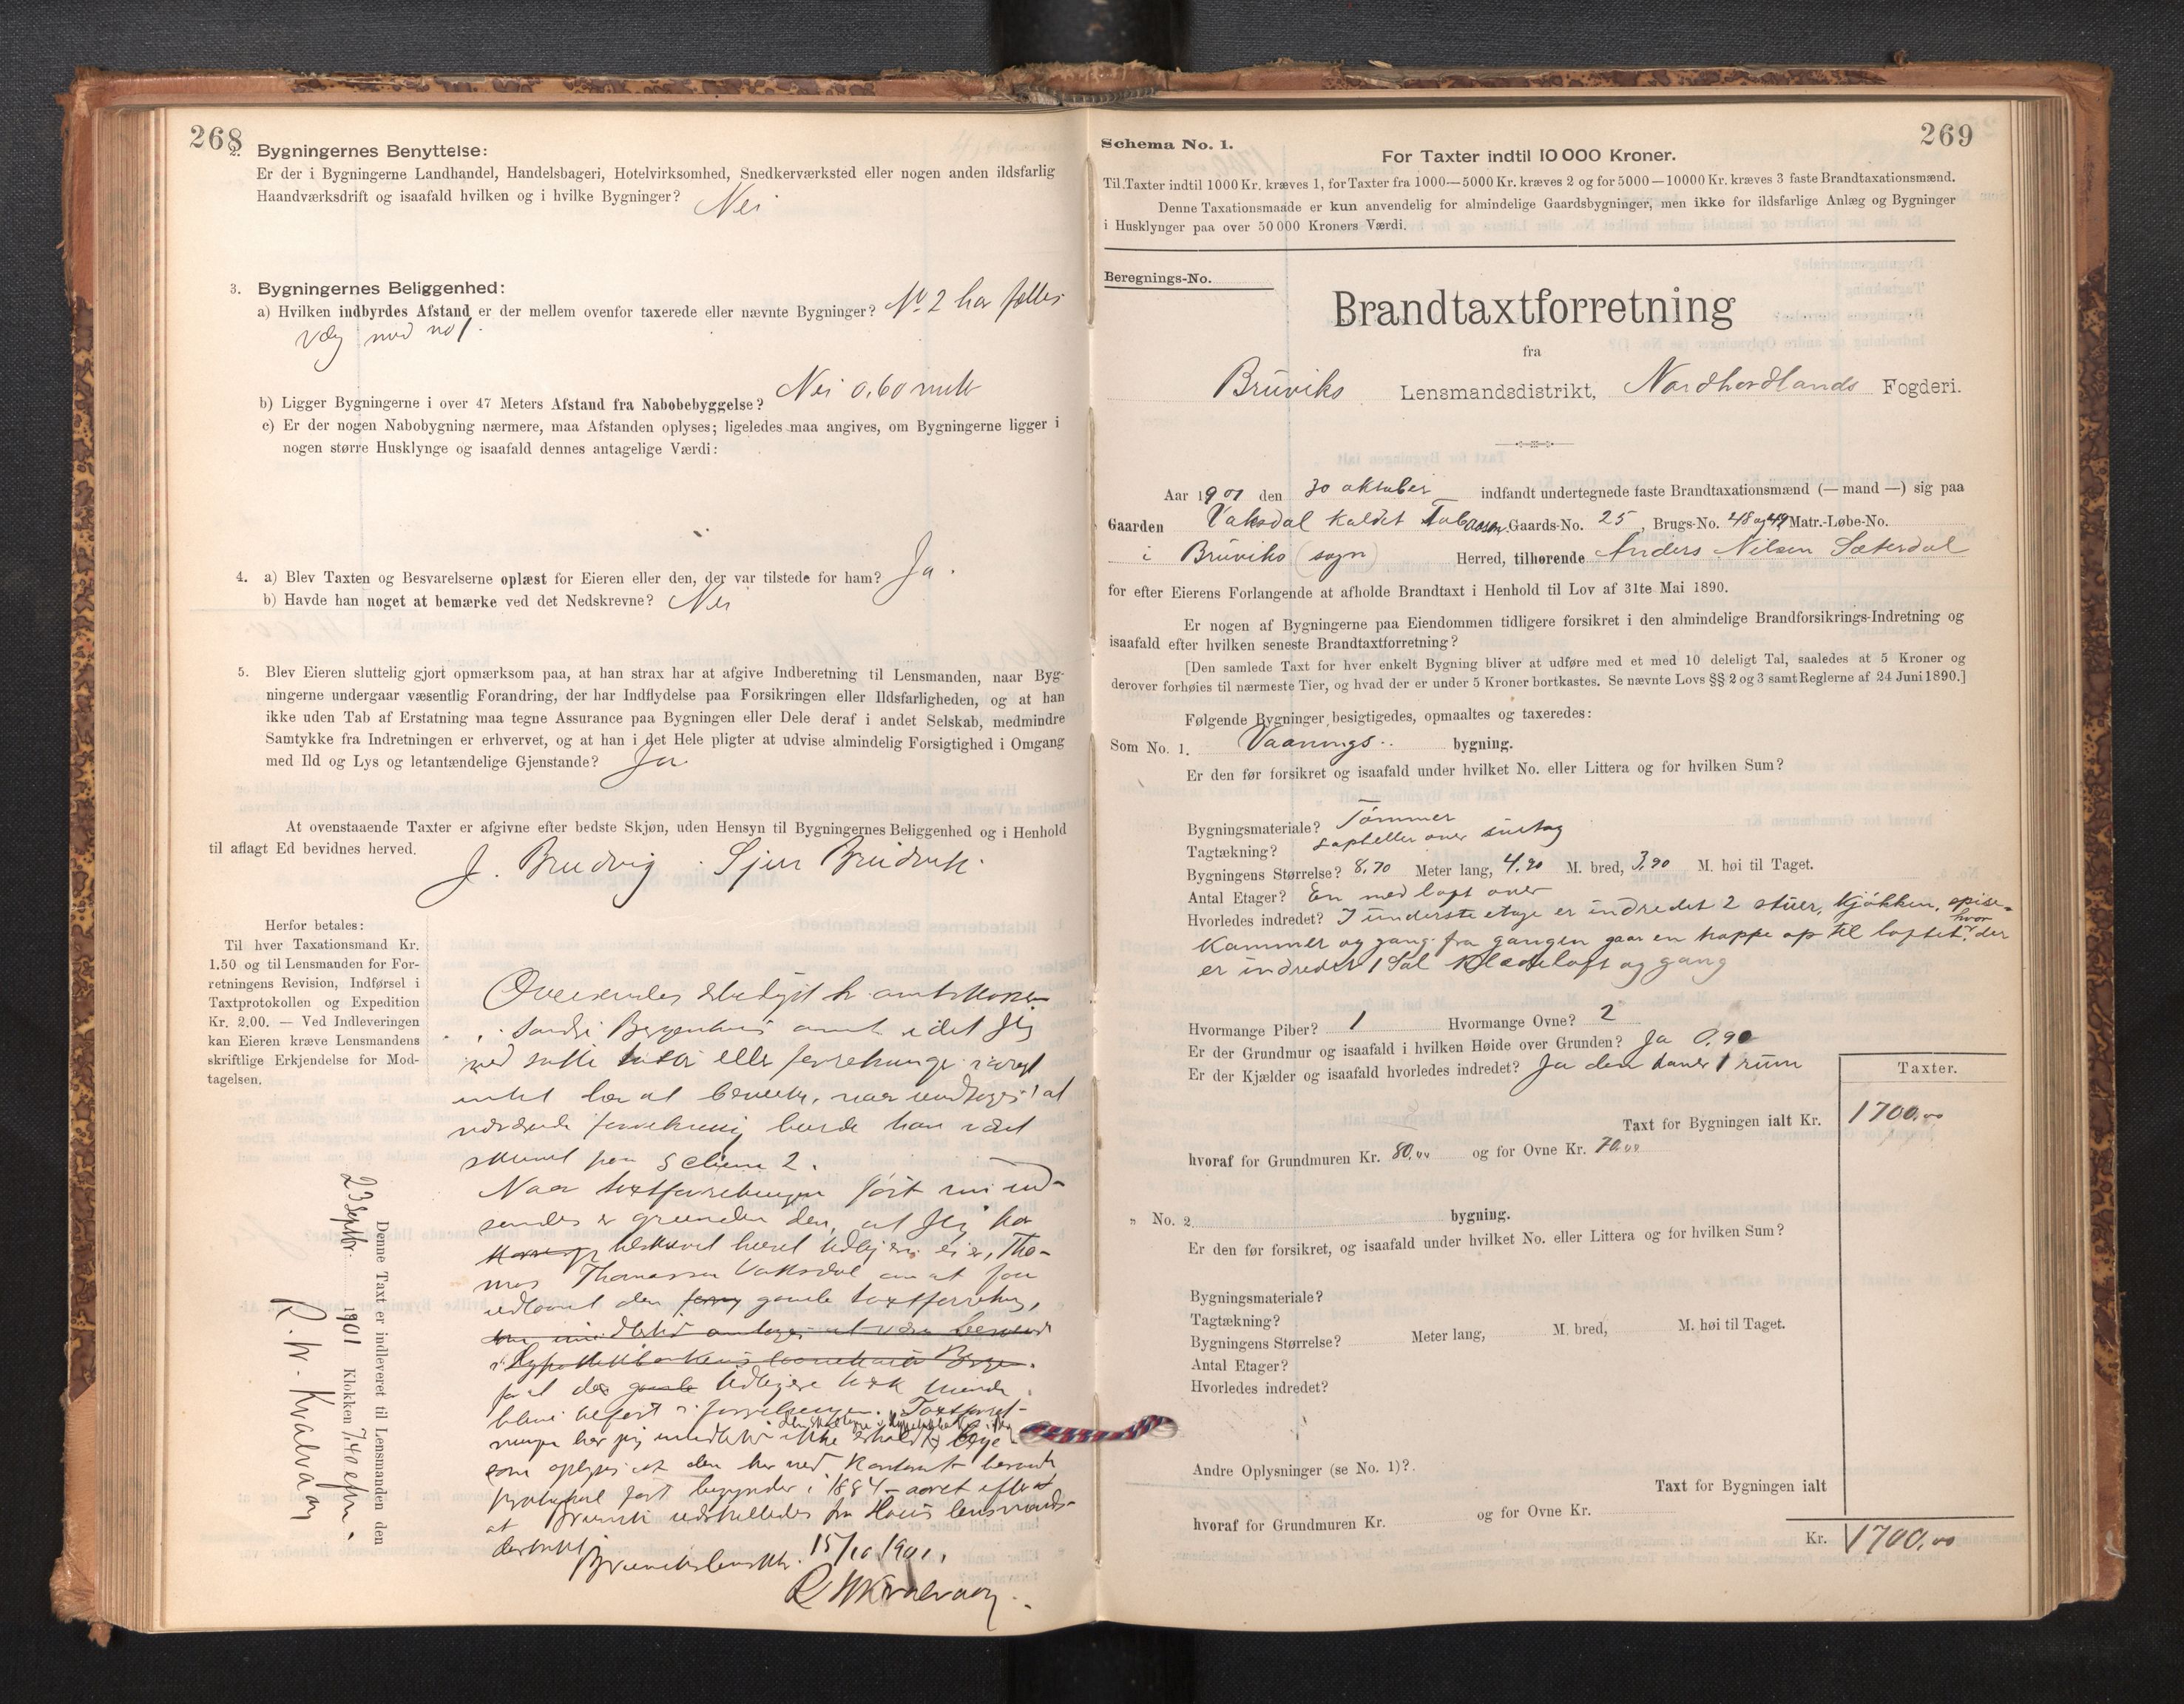 268
2. Bygningernes Benyttelse:
Er der i Bygningerne Landhandel, Handelsbageri, Hotelvirksomhed, Snedkerværksted eller nogen anden ildsfarlig
Haandværksdrift og isaafald hvilken og i hvilke Bygninger? Nei
3. Bygningernes Beliggenhed:
a) Hvilken indbyrdes Afstand er der mellem ovenfor taxerede eller nævnte Bygninger? No 2 har fælles
væg med no 1.
b) Ligger Bygningerne i over 47 Meters Afstand fra Nabobebyggelse? Nei 0,60 metr
c) Er der nogen Nabobygning nærmere, maa Afstanden oplyses; ligeledes maa angives, om Bygningerne ligger i
nogen større Husklynge og isaafald dennes antagelige Værdi:
4. a) Blev Taxten og Besvarelserne oplæst for Eieren eller den, der var tilstede for ham? Ja.
b) Havde han noget at bemærke ved det Nedskrevne? Nei
5. Blev Eieren sluttelig gjort opmærksom paa, at han strax har at afgive Indberetning til Lensmanden, naar Byg-
ningerne undergaar væsentlig Forandring, der har Indflydelse paa Forsikringen eller Ildsfarligheden, og at han
ikke uden Tab af Erstatning maa tegne Assurance paa Bygningen eller Dele deraf i andet Selskab, medmindre
Samtykke fra Indretningen er erhvervet, og at han i det Hele pligter at udvise almindelig Forsigtighed i Omgang
med Ild og Lys og letantændelige Gjenstande? Ja
At ovenstaaende Taxter er afgivne efter bedste Skjøn, uden Hensyn til Bygningernes Beliggenhed og i Henhold
til aflagt Ed bevidnes herved.
J. Brudvig. Sjur Bruvik.
Herfor betales:
Til hver Taxationsmand Kr.
1.50 og til Lensmanden for For-
retningens Revision, Indførsel i
Taxtprotokollen og Expedition
Kr. 2.00. — Ved Indleveringen
kan Eieren kræve Lensmandens
skriftlige Erkjendelse for Mod-
tagelsen.
Denne Taxt er indleveret til Lensmanden den
23 Septbr. 1901 Klokken 7,40 efm.
R. W. Kvalvaag
Oversendes
søndre Bergenhus amt idet Jeg
ved
intet har at bemerke, naar undtages at
nærværende forretning burde have været
skrevet paa Schema 2.
Naar taxtforretningen først nu ind-
sendes er grunden den, at Jeg har
tilskrevet huset tidligere eier, Tho-
mas Thomassen Vaksdal om at faa
udlaant den gamle taxtforretning,
for at den tidligere taxt kunde
blive
som oplyses at den her ved Kontoret
protokol først begynder i 1884 - aaret efterat
at Bruvik udskilledes fra Haus lensmands-
destrikt.
15/10 1901.
R W Kvalvaag.
269
Schema No. 1.
For Taxter indtil 10 000 Kroner.
Til Taxter indtil 1000 Kr. kræves 1, for Taxter fra 1000—5000 Kr. kræves 2 og for 5000—10000 Kr. kræves 3 faste Brandtaxationsmænd.
Denne Taxationsmaade er kun anvendelig for almindelige Gaardsbygninger, men ikke for ildsfarlige Anlæg og Bygninger
i Husklynger paa over 50 000 Kroners Værdi.
Beregnings-No.
Brandtaxtforretning
fra
Bruviks Lensmandsdistrikt, Nordhordlands Fogderi.
Aar 1901 den 30 oktober indfandt undertegnede faste Brandtaxationsmænd (— mand —) sig paa
Gaarden Vaksdal kaldet Gaards-No. 25, Brugs-No. 48 og 49 Matr.-Løbe-No.
i Bruviks (sogn) Herred, tilhørende Anders Nilsen Sæterdal
for efter Eierens Forlangende at afholde Brandtaxt i Henhold til Lov af 31te Mai 1890.
Er nogen af Bygningerne paa Eiendommen tidligere forsikret i den almindelige Brandforsikrings-Indretning og
isaafald efter hvilken seneste Brandtaxtforretning?
[Den samlede Taxt for hver enkelt Bygning bliver at udføre med et med 10 deleligt Tal, saaledes at 5 Kroner og
derover forhøies til nærmeste Tier, og hvad der er under 5 Kroner bortkastes. Se nævnte Lovs §§ 2 og 3 samt Reglerne af 24 Juni 1890.]
Følgende Bygninger besigtigedes, opmaaltes og taxeredes:
Som No. 1. Vaanings.. bygning.
Er den før forsikret og isaafald under hvilket No. eller Littera og for hvilken Sum?
Bygningsmateriale? Tömmer
Tagtækning? Lapheller over sutag
Bygningens Størrelse? 8,70 Meter lang, 4,90 M. bred, 3,90 M. høi til Taget.
Antal Etager? En med loft over
Hvorledes indredet? I underste etage er indredet 2 stuer, kjökken, spise-
kammer og gang. fra gangen gaar en trappe op til loftet, hvor der
er indredet 1 Sal Klædeloft og gang
Hvormange Piber? 1 Hvormange Ovne? 2
Er der Grundmur og isaafald i hvilken Høide over Grunden? Ja 0,90
Er der Kjælder og isaafald hvorledes indredet? Ja den daner 1 rum
Taxter.
Taxt for Bygningen ialt Kr. 1700,00
hvoraf for Grundmuren Kr. 80,00 og for Ovne Kr. 70,00
„ No. 2 bygning.
Er den før forsikret, og isaafald under hvilket No. eller Littera og for hvilken Sum?
Bygningsmateriale?
Tagtækning?
Bygningens Størrelse? Meter lang, M. bred, M. høi til Taget.
Antal Etager?
Hvorledes indredet?
Andre Oplysninger (se No. 1)?
Taxt for Bygningen ialt
hvoraf for Grundmuren Kr. og for Ovne Kr.
Kr. 1700,00